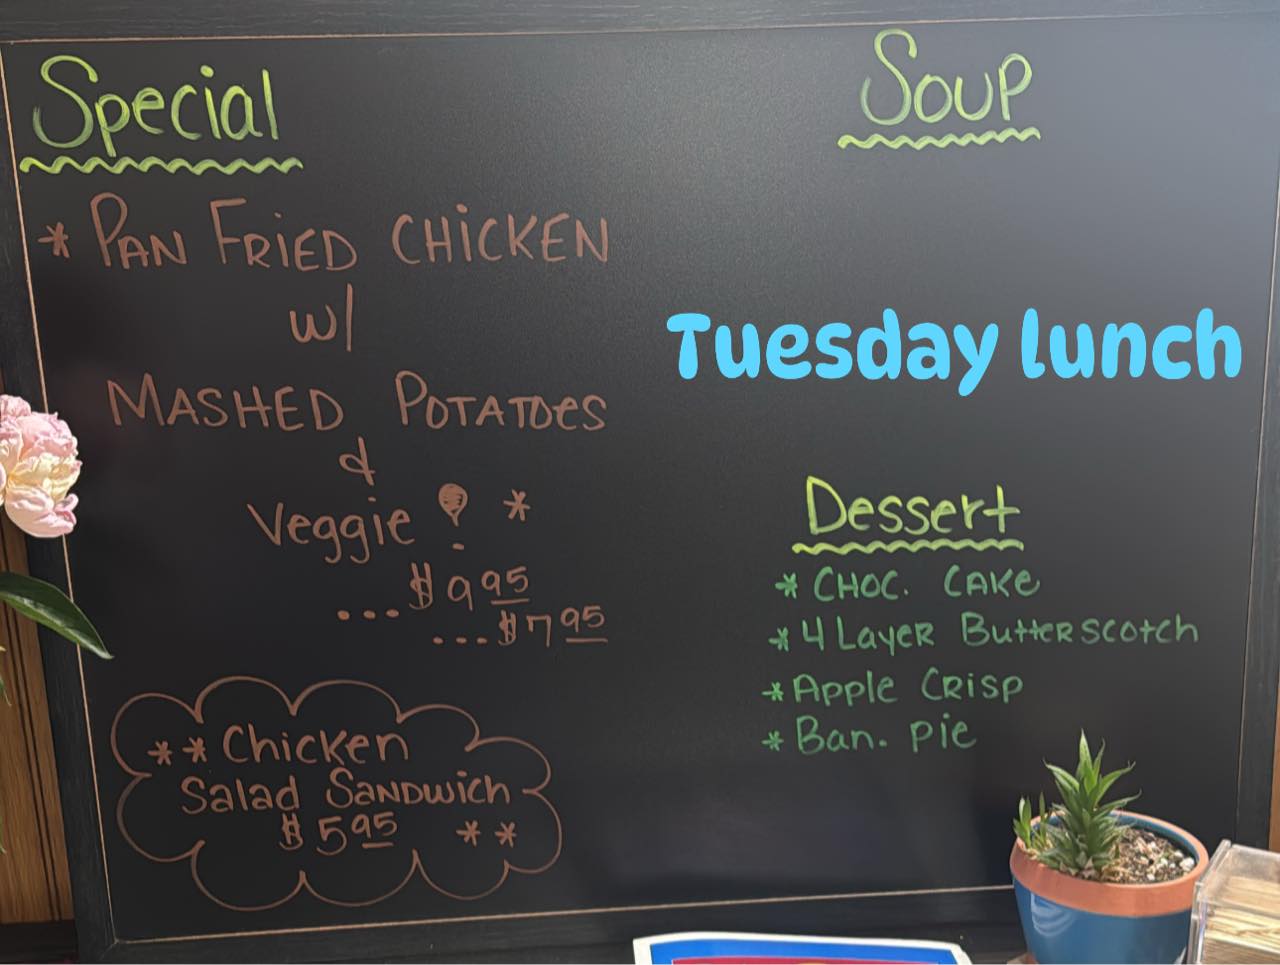 Special
* PAN FRIED CHICKEN
w/
MASHED POTATOES
&
Veggie ! *
...$9 95
...$7 95
** Chicken
Salad SANDwich
$5 95 **
Soup
Tuesday lunch
Dessert
* CHOC. CAKE
* 4 Layer Butterscotch
* Apple Crisp
* Ban. pie